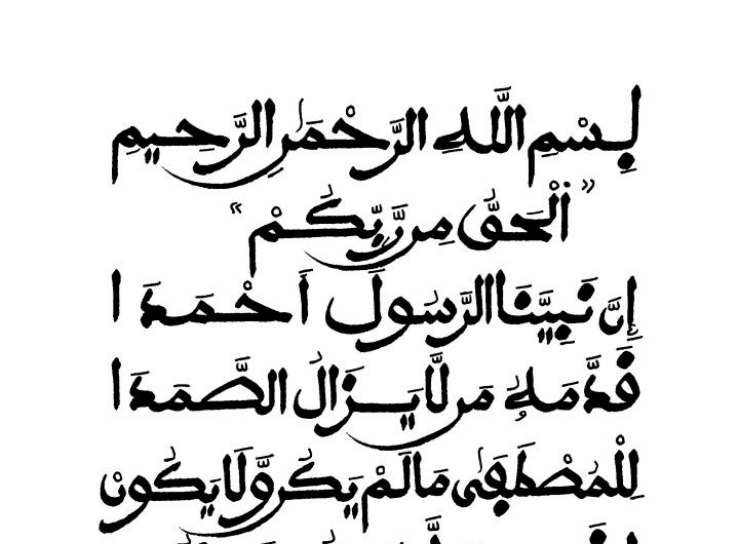 بِسْمِ اللَّهِ الرَّحْمَٰنِ الرَّحِيمِ
"اَلْحَقُّ مِن رَّبِّكُمْ"
إِنَّ نَبِيَّنَا الرَّسُولَ أَحْمَدَا
قَدَّمَهُ مَن لَّا يَزَالُ الصَّمَدَا
لِلْمُصْطَفَى مَا لَمْ يَكُن وَّلَا يَكُونْ